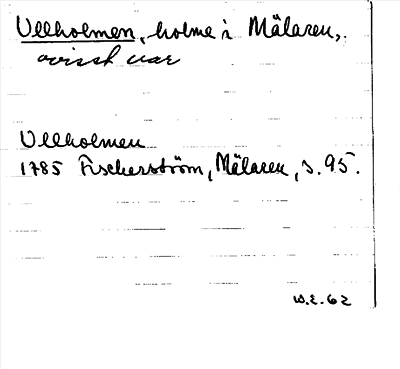 Ullholmen, holme i Mälaren,
ovisst var
Ullholmen
1785 Fischerström, Mälaren, s. 95.
W.E. 62